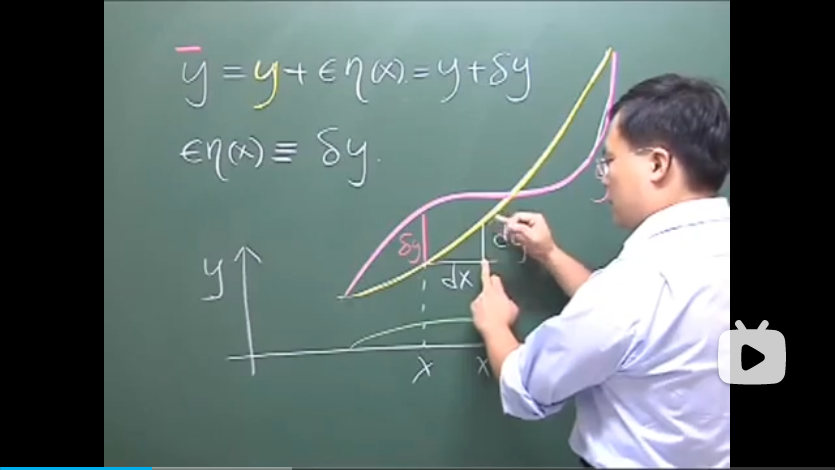 ȳ = y + εη(x) = y + δy
εη(x) ≡ δy.
δy
dy
dx
y
x
x